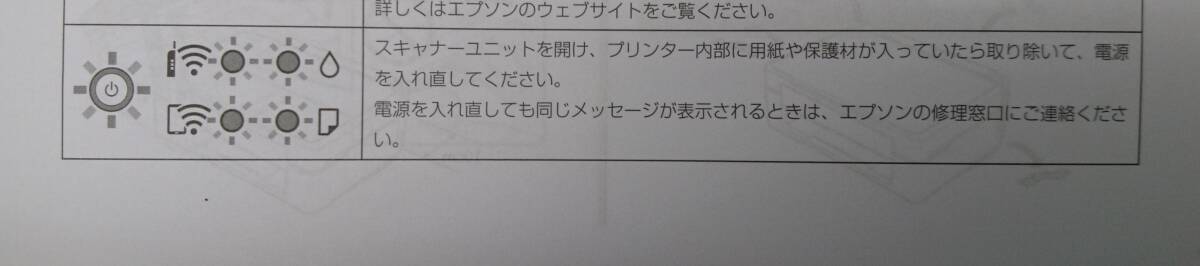 詳しくはエプソンのウェブサイトをご覧ください。
スキャナーユニットを開け、プリンター内部に用紙や保護材が入っていたら取り除いて、電源
を入れ直してください。
電源を入れ直しても同じメッセージが表示されるときは、エプソンの修理窓口にご連絡くださ
い。